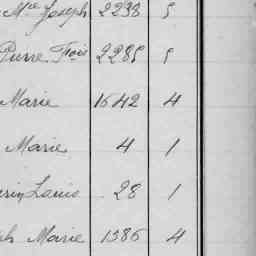 Mie Joseph 2238 5
Pierre Frois 2285 5
Marie 1642 4
Marie 4 1
Louis 28 1
Marie 1386 4